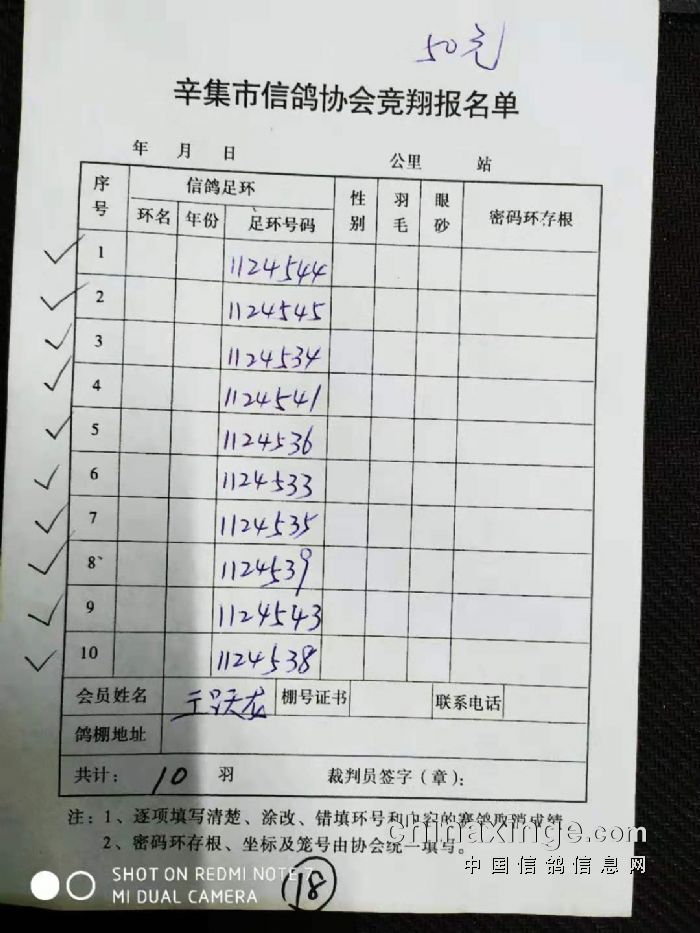 50元
辛集市信鸽协会竞翔报名单
年 月 日 公里 站
序号 信鸽足环 性别 羽毛 眼砂 密码环存根
环名 年份 足环号码
1 1124544
2 1124545
3 1124534
4 1124541
5 1124536
6 1124533
7 1124535
8 1124539
9 1124543
10 1124538
会员姓名 天龙 棚号证书 联系电话
鸽棚地址
共计: 10 羽 裁判员签字(章):
注:1、逐项填写清楚、涂改、错填环号和内容的赛鸽取消成绩
2、密码环存根、坐标及笼号由协会统一填写。
chinaxinge.com
中国信鸽信息网
SHOT ON REDMI NOTE 7
MI DUAL CAMERA
18